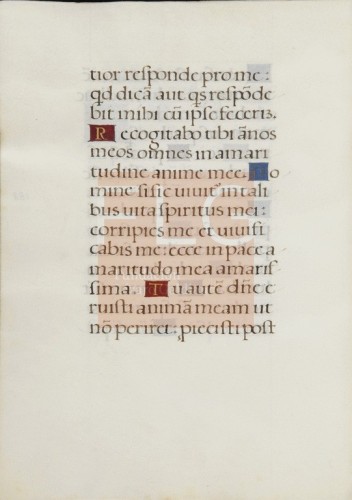 tior responde pro me:
qd dicā aut qs respōde
bit mihi cū ipse fecerit.
Recogitabo tibi ānos
meos omnes in amari
tudine anime mee. Do
mine si sic uiuit in tali
bus uita spiritus mei:
corripies me et uiuifi
cabis me: ecce in pace a
maritudo mea amaris
sima. Tu autē dn̄e e
ruisti animām meam ut
nō periret: proiecisti post
FLG